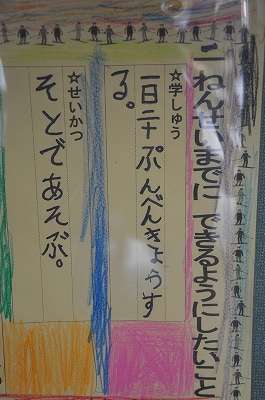 二ねんせいまでに できるようにしたいこと
☆学しゅう
一日二十ぷんべんきょうす
る。
☆せいかつ
そとであそぶ。